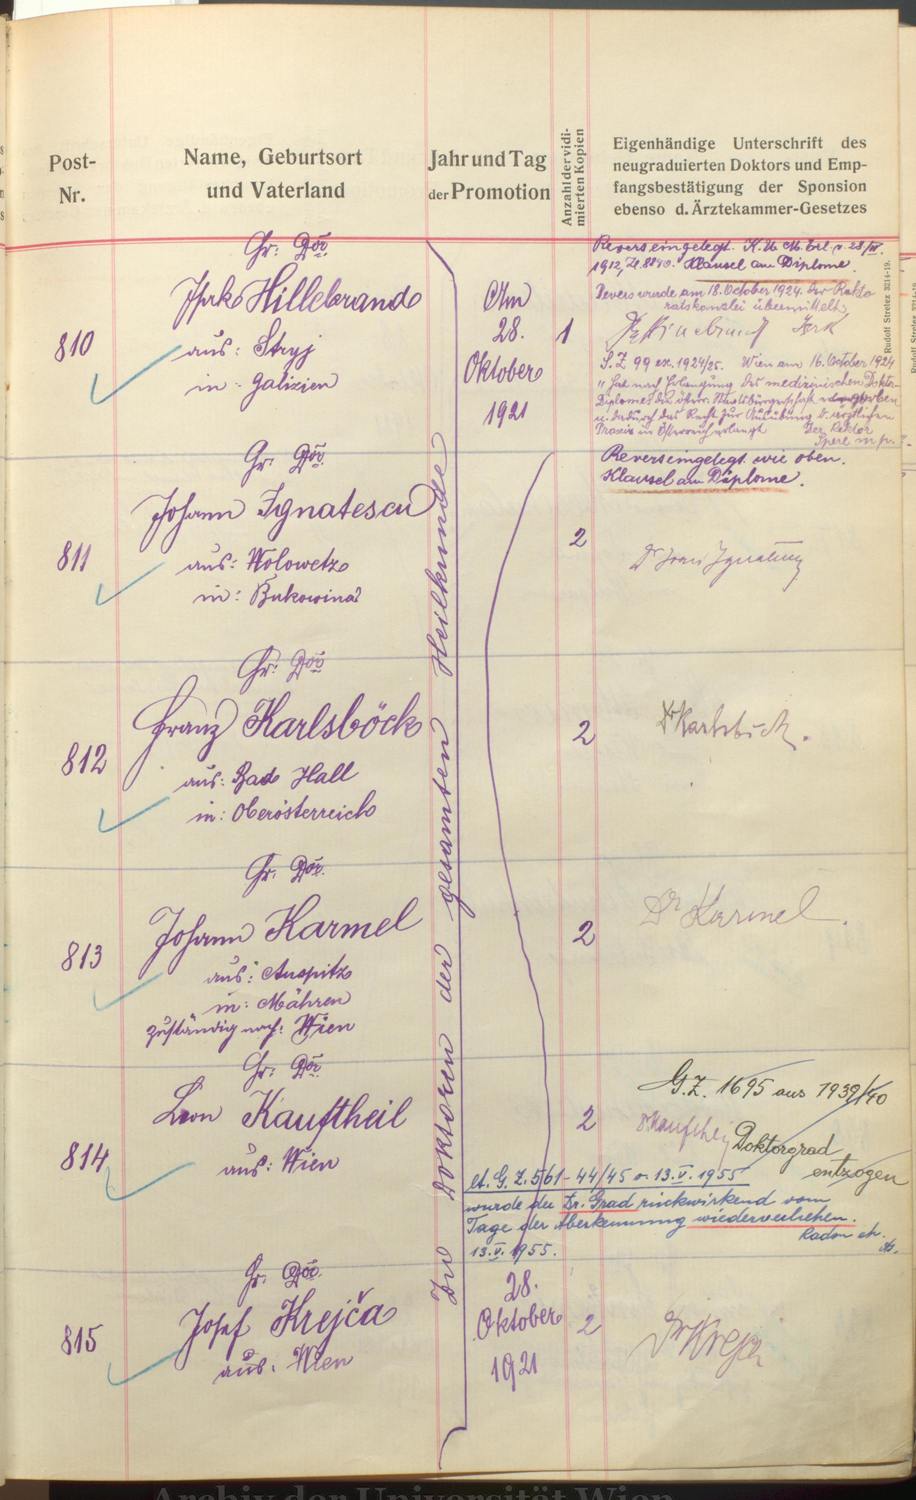 Post-
Nr.
Name, Geburtsort
und Vaterland
Jahr und Tag
der Promotion
Anzahl der vidi-
mierten Kopien
Eigenhändige Unterschrift des
neugraduierten Doktors und Emp-
fangsbestätigung der Sponsion
ebenso d. Ärztekammer-Gesetzes
Rudolf Strelez 3214-19.
Zu Doktoren der gesamten Heilkunde
810
Hr: Dor
Isak Hillebrand
aus: Stryj
in: Galizien
Am
28.
Oktober
1921
1
Revers eingelegt. K. U. M. Erl. v. 28/
1912, Zl. 8890. Klausel am Diplome.
Revers wurde am 18. October 1924. der Rekto
ratskanzlei übermittelt.
S. Z 99 ex. 1924/25. Wien am 16. October 1924
"Hat nach Erlangung des medizinischen Doktor-
Diplomes die österr. Staatsbürgerschaft erworben
u. dadurch das Recht zur Ausübung d. ärztlichen
Praxis in Österreich erlangt Der Rektor
Sperl m.p."
811
Hr: Dor
Johann Ignatescu
aus: Wolowetz
in: Bukowina
2
Revers eingelegt wie oben.
Klausel am Diplome.
812
Hr: Dor
Franz Karlsböck
aus: Bad Hall
in: Oberösterreich
2
Dr Karlsböck.
813
Hr: Dor.
Johann Karmel
aus: Auspitz
in: Mähren
zuständig nach: Wien
2
Dr Karmel.
814
Hr: Dor
Leon Kauftheil
aus: Wien
2
G.Z. 1695 aus 1939/40
Dr Kauftheil
Doktorgrad
entzogen
lt. G. Z. 561-44/45 v. 13.V.1955
wurde der Dr. Grad rückwirkend vom
Tage der Aberkennung wiederverliehen.
13.V.1955.
815
Hr: Dor.
Josef Krejča
aus: Wien
28.
Oktober
1921
2
Dr Krejči
Archiv der Universität Wien